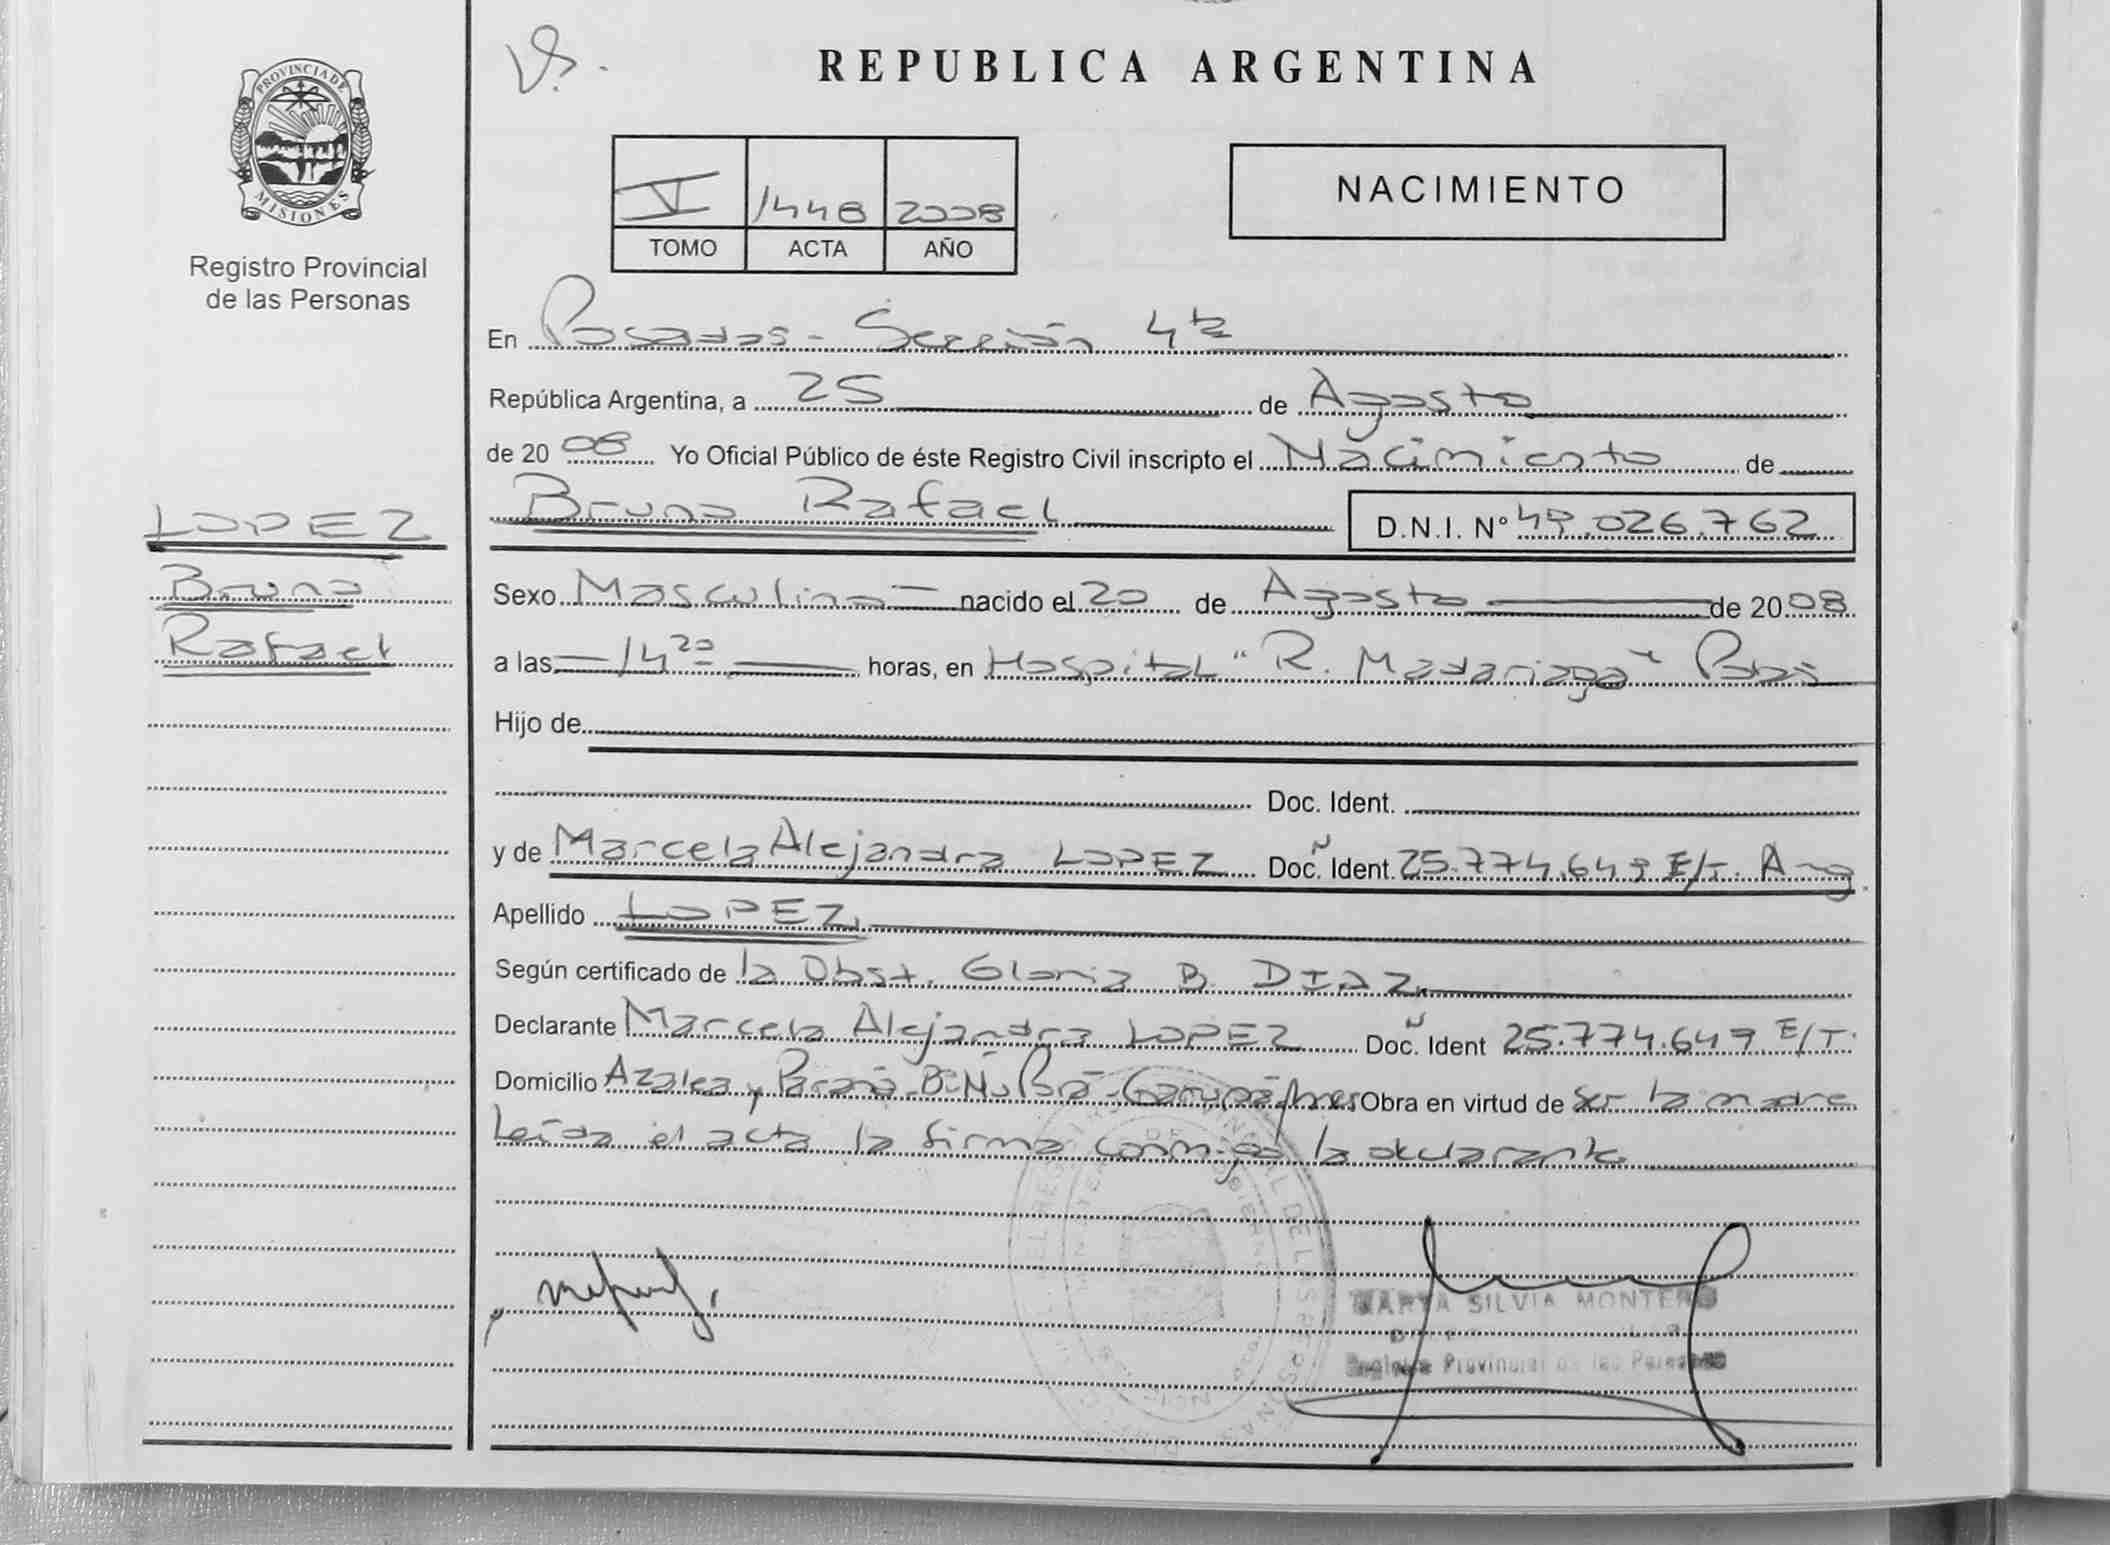 PROVINCIA DE
MISIONES
Registro Provincial
de las Personas
REPUBLICA ARGENTINA
V 1448 2008
TOMO ACTA AÑO
NACIMIENTO
En Posadas - Sección 4ta
República Argentina, a 25 de Agosto
de 2008 Yo Oficial Público de éste Registro Civil inscripto el Nacimiento de
LOPEZ
Bruno
Rafael
Bruno Rafael D.N.I. Nº 49.026.762
Sexo Masculino nacido el 20 de Agosto de 2008
a las 14 20 horas, en Hospital "R. Madariaga" Pdas
Hijo de
Doc. Ident.
y de Marcela Alejandra LOPEZ Doc. Ident. 25.774.649 E/T. Arg.
Apellido LOPEZ
Según certificado de la Obst. Gloria B. DIAZ
Declarante Marcela Alejandra LOPEZ Doc. Ident 25.774.649 E/T.
Domicilio Azalea y Paraná - Bº Ñu Porá - Garupá Mnes Obra en virtud de ser la madre
Leída el acta la firma conmigo la declarante
MARTA SILVIA MONTERO
Registro Provincial de las Personas